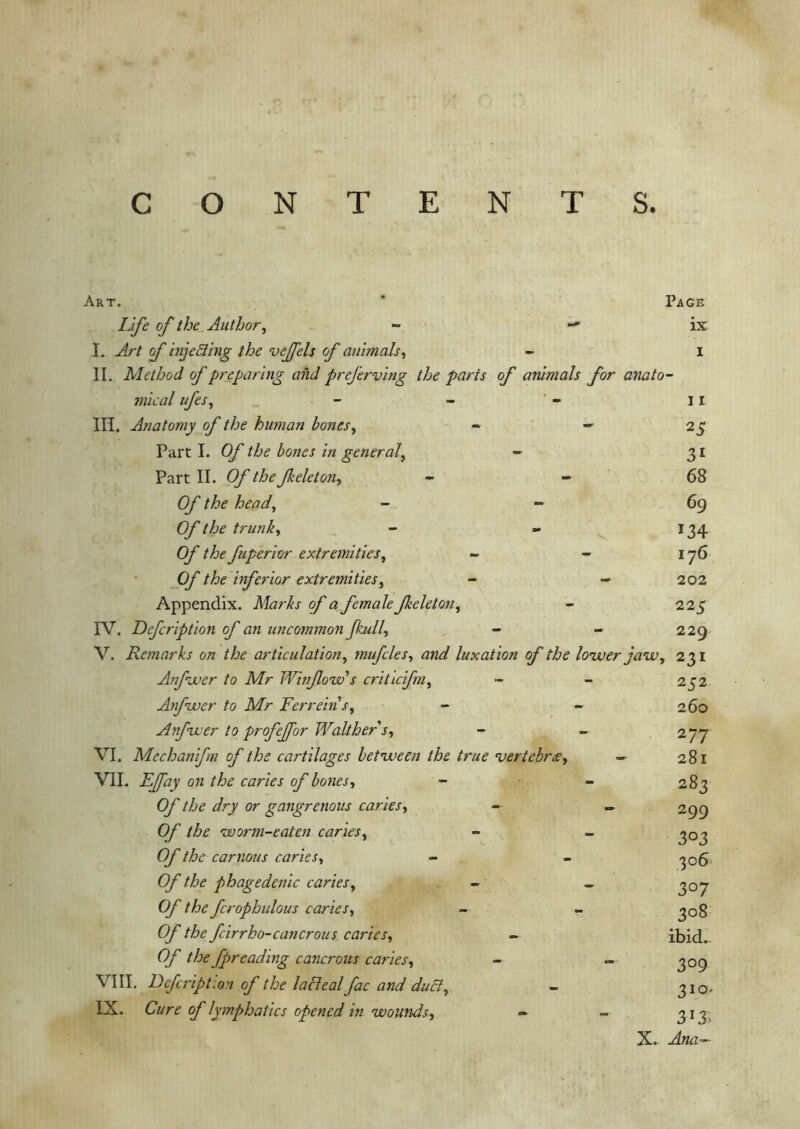 CONTENTS.
ART. PAGE
Life of the Author, - - ix
I. Art of injecting the veſſels of animals, - 1
II. Method of preparing and preſerving the parts of animals for anato-
mical uſes, - - - 11
III. Anatomy of the human bones, - - 25
Part I. Of the bones in general, - 31
Part II. Of the ſkeleton, - - 68
Of the head, - - 69
Of the trunk, - - 134
Of the ſuperior extremities, - - 176
Of the inferior extremities, - - 202
Appendix. Marks of a female ſkeleton, - 225
IV. Deſcription of an uncommon ſkull, - - 229
V. Remarks on the articulation, muſcles, and luxation of the lower jaw, 231
Anſwer to Mr Winſlow's criticiſm, - - 252
Anſwer to Mr Ferrein's, - - 260
Anſwer to profeſſor Walther's, - - 277
VI. Mechaniſm of the cartilages between the true vertebræ, - 281
VII. Eſſay on the caries of bones, - - 283
Of the dry or gangrenous caries, - - 299
Of the worm-eaten caries, - - 303
Of the carnous caries, - - 306
Of the phagedenic caries, - - 307
Of the ſcrophulous caries, - - 308
Of the ſcirrho-cancrous caries, - ibid.
Of the ſpreading cancrous caries, - - 309
VIII. Deſcription of the lacteal ſac and duct, - 310
IX. Cure of lymphatics opened in wounds, - - 313
X. Ana-